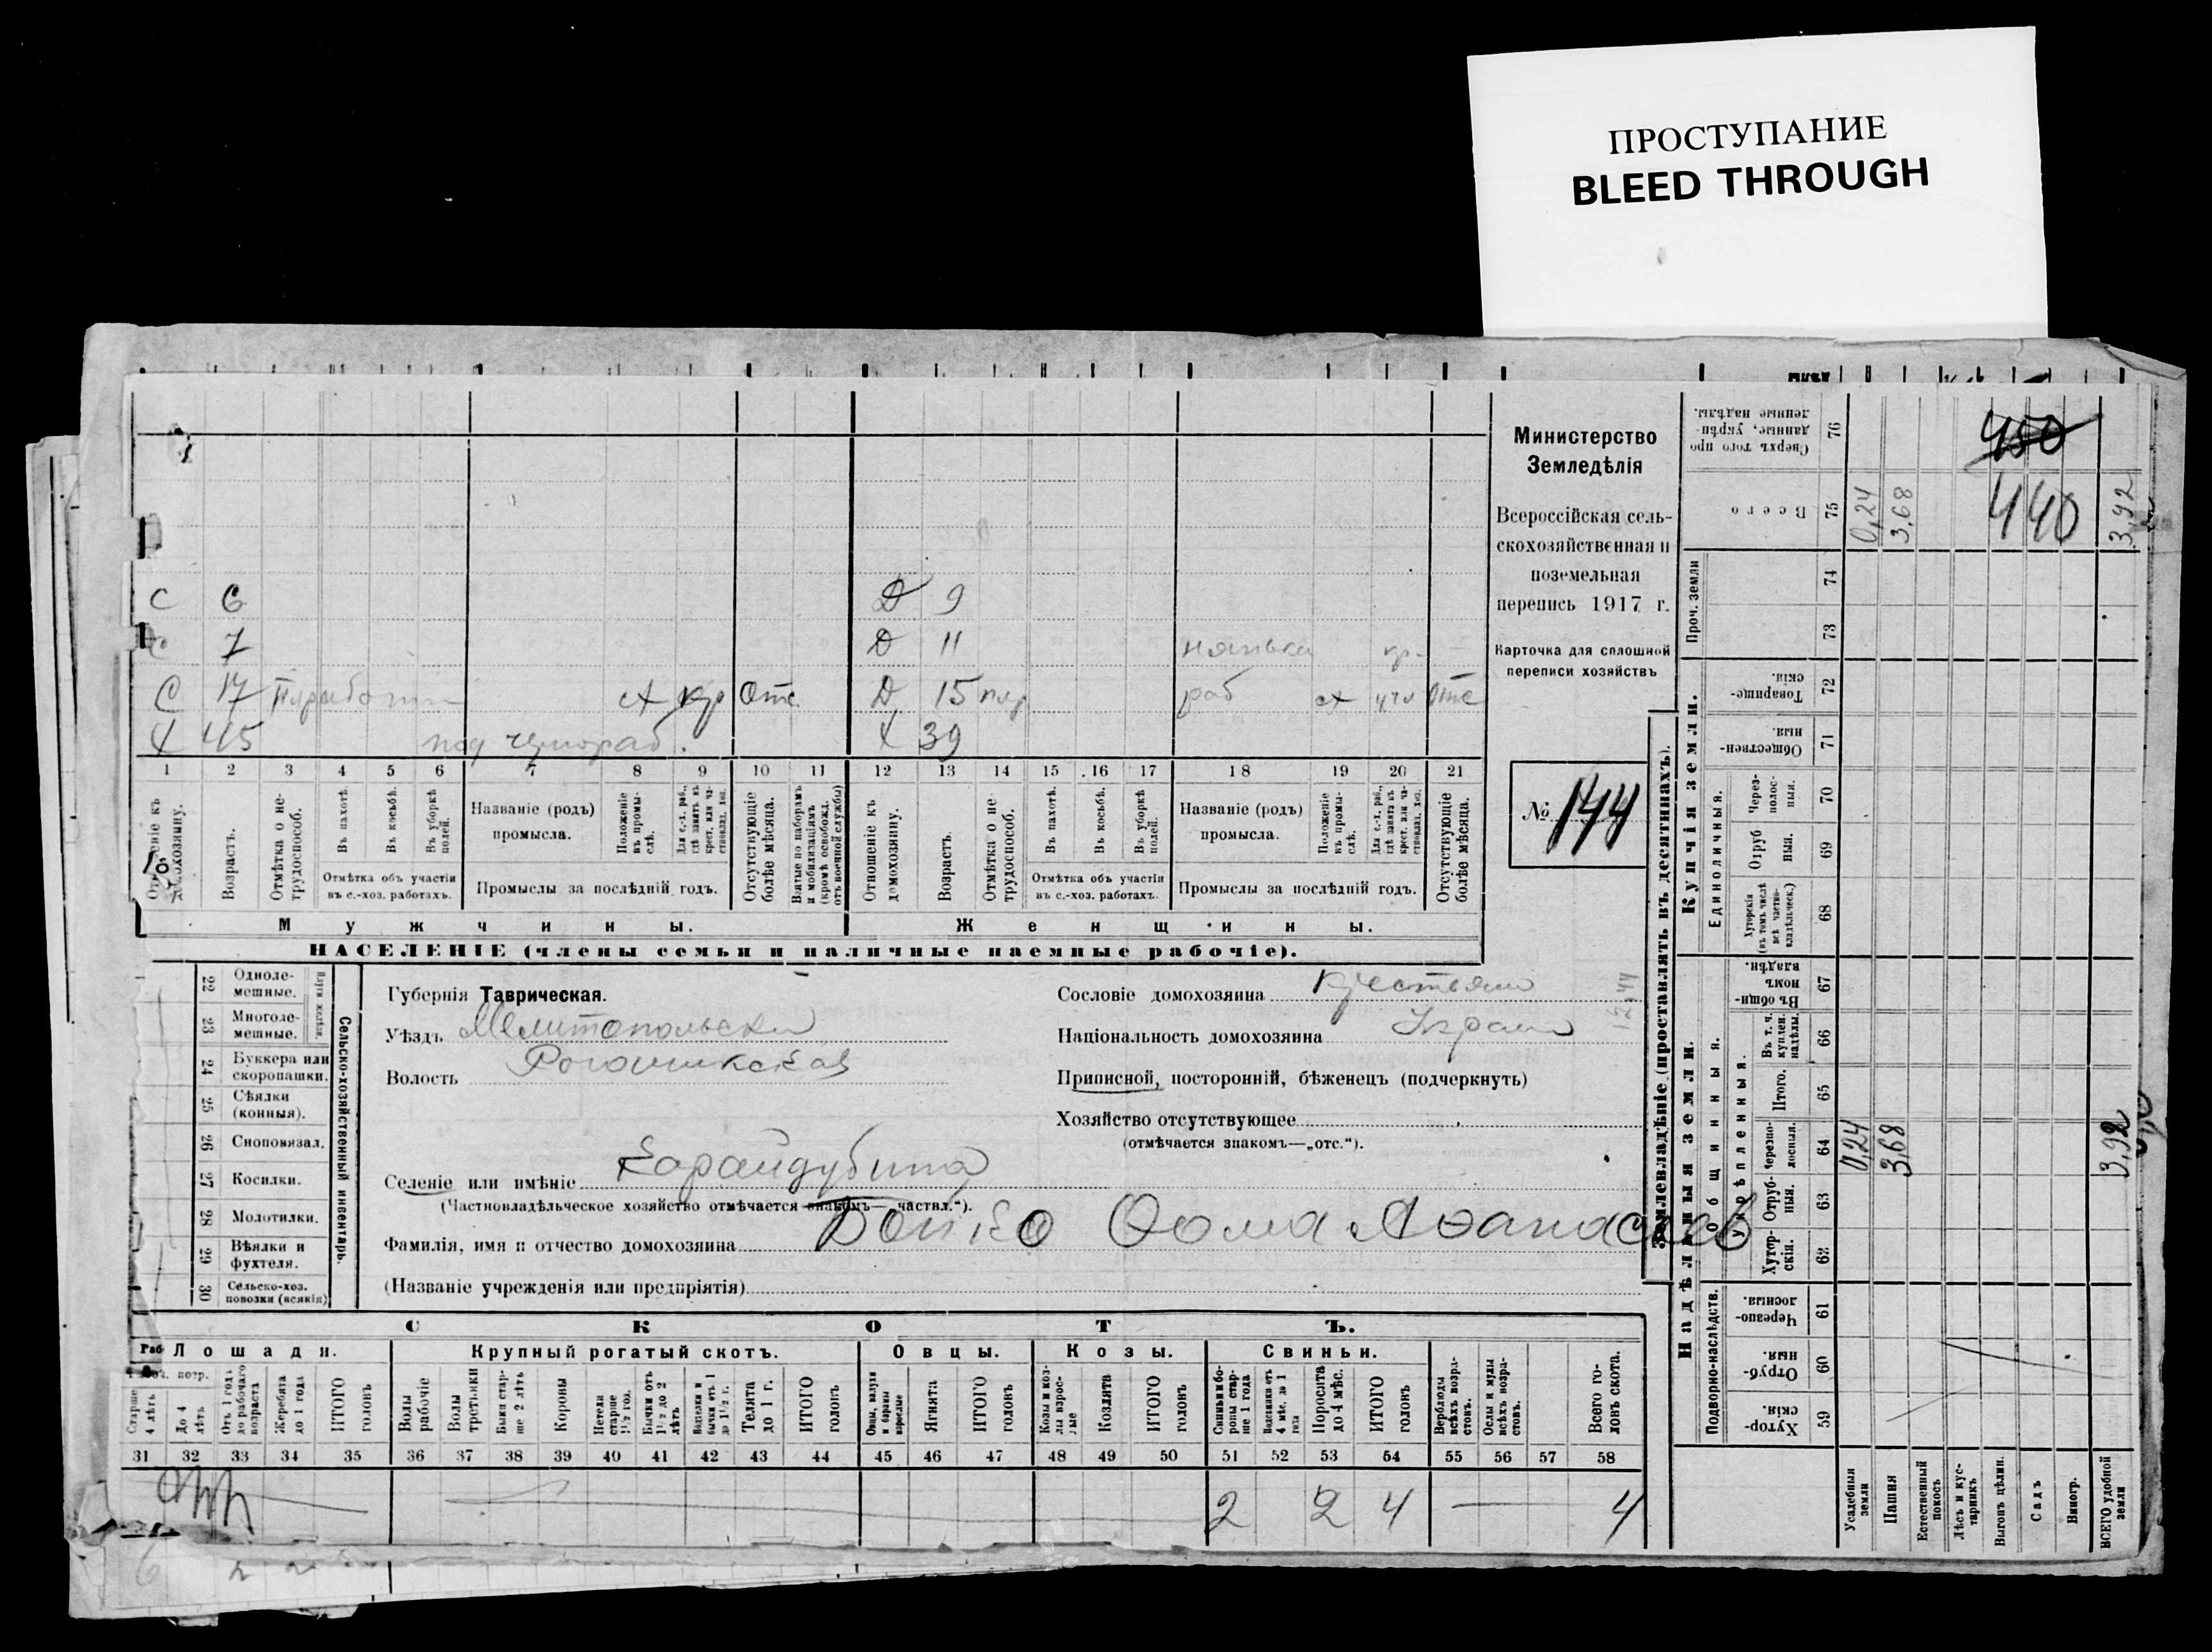 ПРОСТУПАНИЕ
BLEED THROUGH
Министерство
Земледѣлія
Всероссійская сель-
скохозяйственная и
поземельная
перепись 1917 г.
Карточка для сплошной
переписи хозяйствъ
№ 144
С 6 Д 9
С 7 Д 11 нянька кр.
С 17 отс. Д 15 раб отс
Х 45 Х 39
1 2 3 4 5 6 7 8 9 10 11 12 13 14 15 16 17 18 19 20 21
Отношеніе къ домохозяину.
Возрастъ.
Отмѣтка о не-
трудоспособ.
Въ пахотѣ.
Въ косьбѣ.
Въ уборкѣ
полей.
Отмѣтка объ участіи
въ с.-хоз. работахъ.
Названіе (родъ)
промысла.
Положеніе
въ промы-
слѣ.
Для с.-х. раб.,
гдѣ занятъ въ
крест. или ча-
стновлад. хоз.
Промыслы за послѣдній годъ.
Отсутствующіе
болѣе мѣсяца.
Взятые по наборамъ
и мобилизаціямъ
(кромѣ освобожд.
отъ военной службы)
Отношеніе къ
домохозяину.
Возрастъ.
Отмѣтка о не-
трудоспособ.
Въ пахотѣ.
Въ косьбѣ.
Въ уборкѣ
полей.
Отмѣтка объ участіи
въ с.-хоз. работахъ.
Названіе (родъ)
промысла.
Положеніе
въ промы-
слѣ.
Для с.-х. раб.,
гдѣ занята въ
крест. или ча-
стновлад. хоз.
Промыслы за послѣдній годъ.
Отсутствующіе
болѣе мѣсяца.
Мужчины. Женщины.
НАСЕЛЕНІЕ (члены семьи и наличные наемные рабочіе).
Сельско-хозяйственный инвентарь.
22 Одноле-
мешные.
23 Многоле-
мешные.
24 Буккера или
скоропашки.
25 Сѣялки
(конныя).
26 Сноповязал.
27 Косилки.
28 Молотилки.
29 Вѣялки и
фухтеля.
30 Сельско-хоз.
повозки (всякія)
Губернія Таврическая.
Уѣздъ Мелитопольскій
Волость Рогачикская
Селеніе или имѣніе Карайдубина
(Частновладѣльческое хозяйство отмѣчается знакомъ—„частвл.“).
Фамилія, имя и отчество домохозяина Бойко Фома Афанасьев
(Названіе учрежденія или предпріятія)
Сословіе домохозяина крестьянин
Національность домохозяина Украин
Приписной, посторонній, бѣженецъ (подчеркнуть)
Хозяйство отсутствующее
(отмѣчается знакомъ—„отс.“).
СКОТЪ.
Лошади. Крупный рогатый скотъ. Овцы. Козы. Свиньи.
Старше
4 лѣтъ
До 4
лѣтъ
Отъ 1 года
до рабочаго
возраста
Жеребята
до 1 года
ИТОГО
головъ
Волы
рабочіе
Волы
третьяки
Быки стар-
ше 2 лѣтъ
Коровы
Нетели
старше
1½ год.
Бычки отъ
1½ до 2
лѣтъ
Телята
до 1 г.
ИТОГО
головъ
Овцы, валухи
и бараны
взрослые
Ягнята
ИТОГО
головъ
Козы и коз-
лы взрос-
лые
Козлята
ИТОГО
головъ
Свиньи и бо-
ровы стар-
ше 1 года
Подсвинки отъ
4 мѣс. до 1
года
Поросята
до 4 мѣс.
ИТОГО
головъ
Верблюды
всѣхъ возра-
стовъ.
Ослы и мулы
всѣхъ возра-
стовъ.
Всего го-
ловъ скота.
31 32 33 34 35 36 37 38 39 40 41 42 43 44 45 46 47 48 49 50 51 52 53 54 55 56 57 58
2 2 4 — 4
Землевладѣніе (проставлять въ десятинахъ).
Надѣльныя земли. Купчія земли. Проч. земли
Подворно-наслѣдств. Общинныя. Укрѣпленныя. Единоличныя.
Хутор-
скія. 59
Отруб-
ныя. 60
Черезпо-
лосныя. 61
Хутор-
скія. 62
Отруб-
ныя. 63
Черезпо-
лосныя. 64 0,24 3,68 3,92
Итого. 65
Въ т. ч.
куплен.
надѣлы. 66
Въ общин-
номъ
владѣн. 67
Хуторскія
(въ томъ числѣ
всѣ частно-
владѣльческ.) 68
Отруб
ныя. 69
Через-
полос-
ныя. 70
Обществен-
ныя. 71
Товарище-
скія. 72
73
74
Всего 75 0,24 3,68 440 3,92
Сверхъ того про
даиные, укрѣп-
ленные надѣлы. 76 450
Усадебныя
земли
Пашня
Естественный
покосъ
Лѣсъ и кус-
тарникъ
Выгонъ цѣлин.
Садъ
Виногр.
ВСЕГО удобной
земли